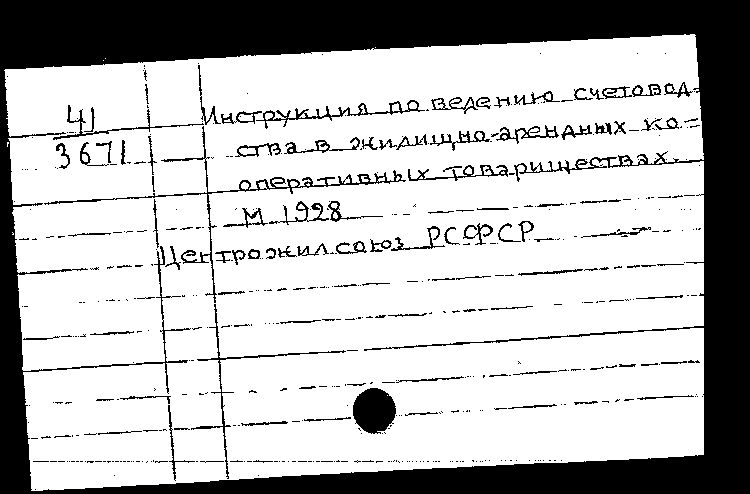 41
3671
Инструкция по ведению счетовод-
ства в жилищно-арендных ко-
оперативных товариществах.
М 1928
Центрожилсоюз РСФСР